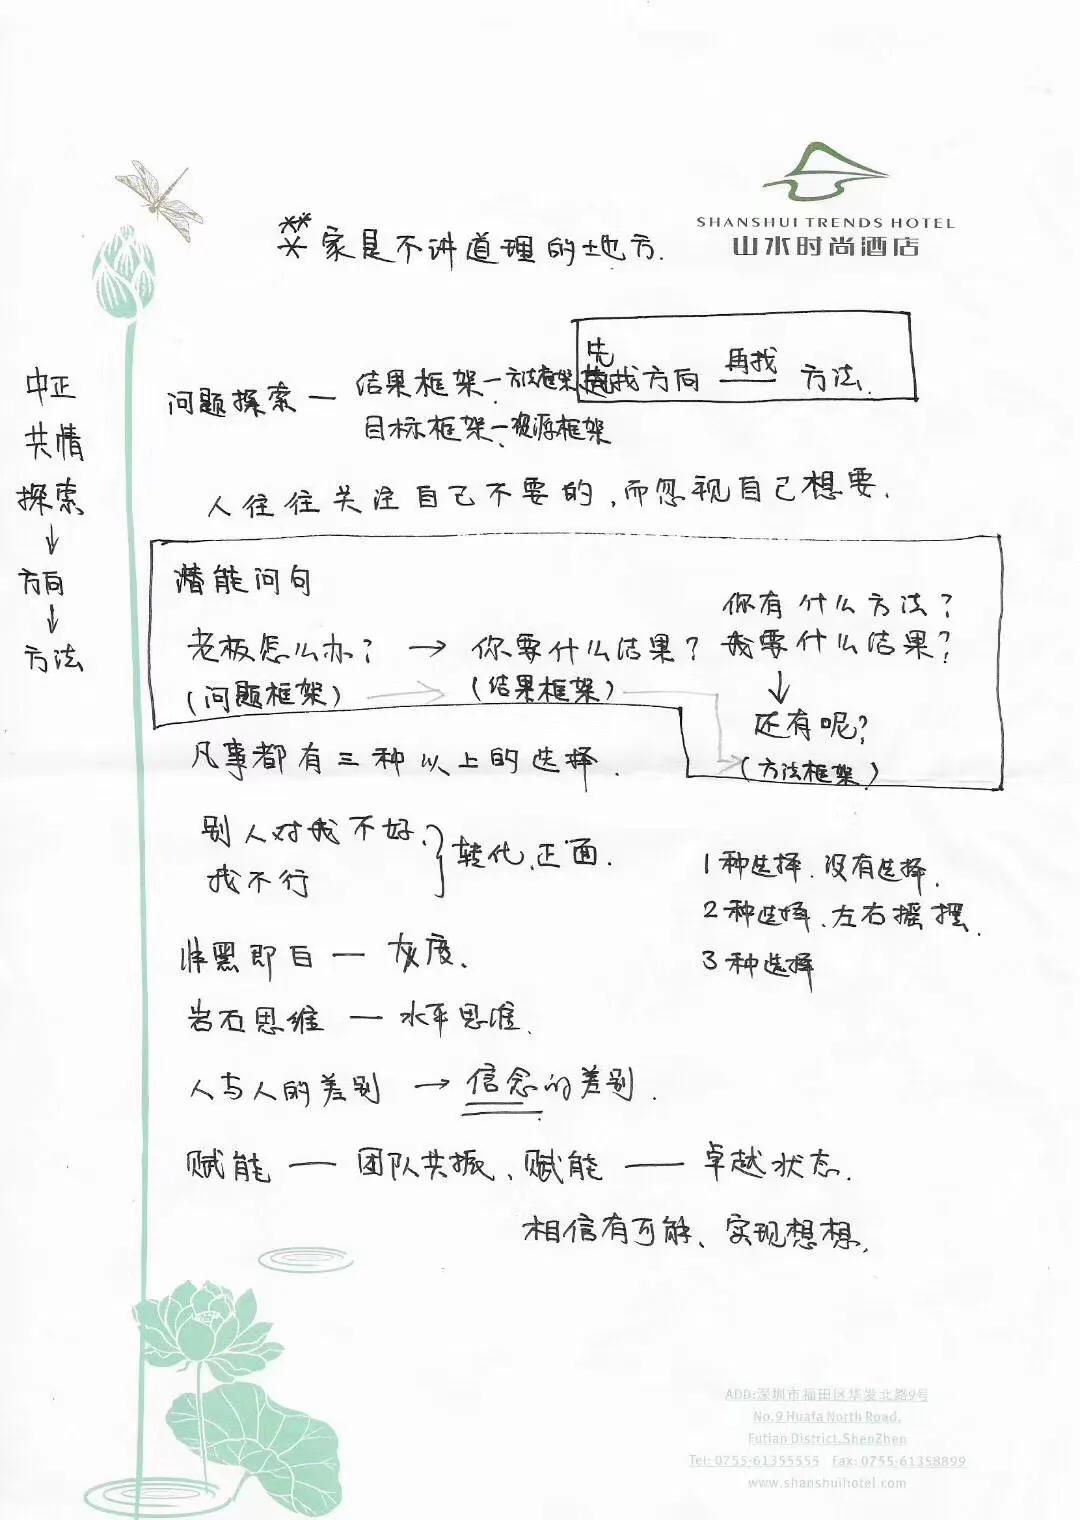 SHANSHUI TRENDS HOTEL
山水时尚酒店
家是不讲道理的地方.
先找方向 再找 方法.
问题探索 — 结果框架—方法框架
目标框架—资源框架
中正
共情
探索
↓
方向
↓
方法
人往往关注自己不要的,而忽视自己想要.
潜能问句
老板怎么办? → 你要什么结果?
(问题框架) → (结果框架)
你有什么方法?
我要什么结果?
↓
还有呢?
(方法框架)
凡事都有三种以上的选择.
别人对我不好、
我不行
} 转化、正面.
1种选择、没有选择.
2种选择、左右摇摆.
3种选择
非黑即白 — 灰度.
岩石思维 — 水平思维.
人与人的差别 → 信念的差别.
赋能 — 团队共振、赋能 — 卓越状态.
相信有可能、实现想想.
ADD:深圳市福田区华发北路9号
No.9 Huafa North Road,
Futian District,ShenZhen
Tel: 0755-61355555 Fax: 0755-61358899
www.shanshuihotel.com